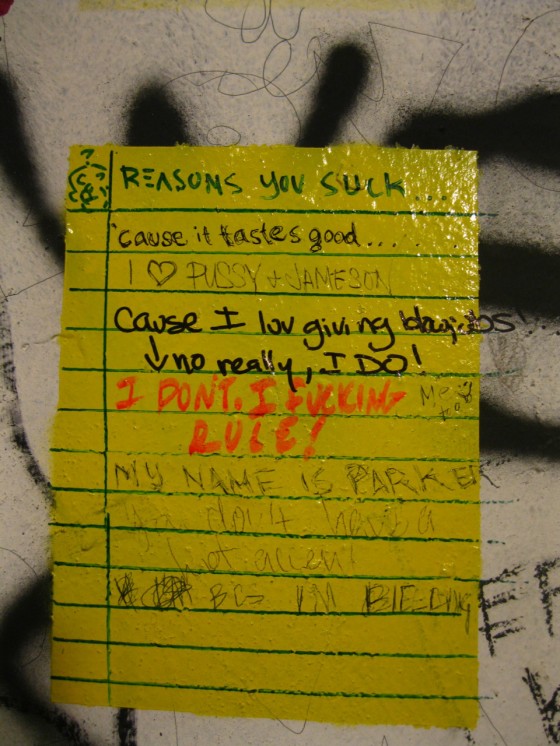 REASONS YOU SUCK....
'cause it tastes good.....
I ♡ PUSSY + JAMESON
Cause I luv giving blow jobs!
↓ no really, I DO!
I DONT. I FUCKING
RULE!
Me
too
MY NAME IS PARKER
You don't have a
hot accent
BC= I'M